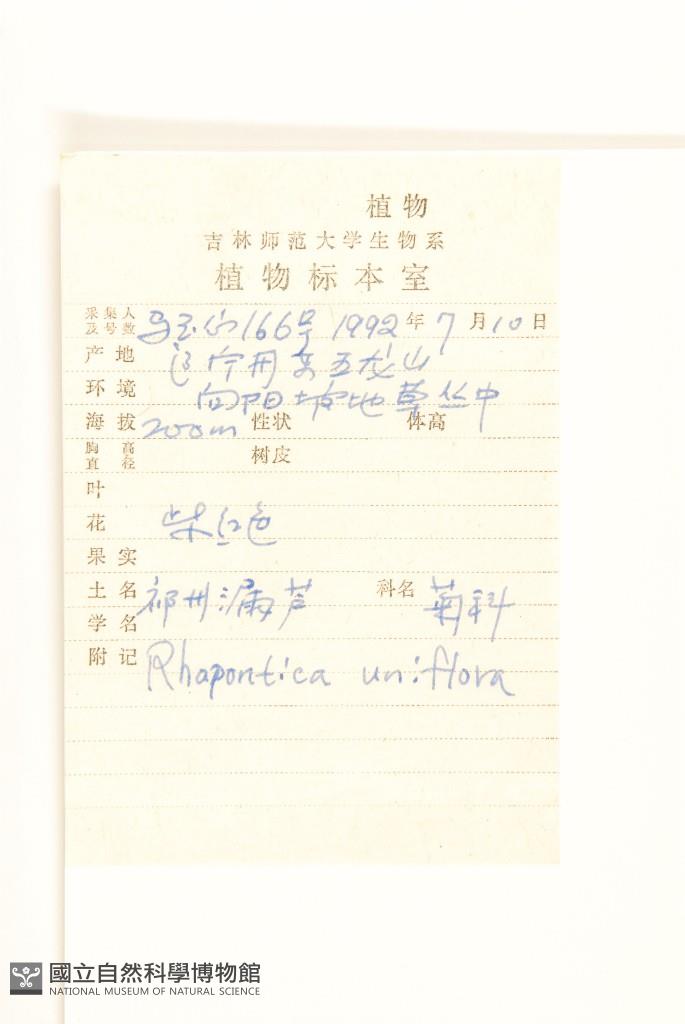 植物
吉林师范大学生物系
植物标本室
采集人及号数 马玉心 166号 1992年7月10日
产地 辽宁丹东五龙山
环境 向阳坡地草丛中
海拔 200m 性状 体高
胸高直径 树皮
叶
花 紫红色
果实
土名 祁州漏芦 科名 菊科
学名
附记 Rhapontica uniflora
國立自然科學博物館
NATIONAL MUSEUM OF NATURAL SCIENCE